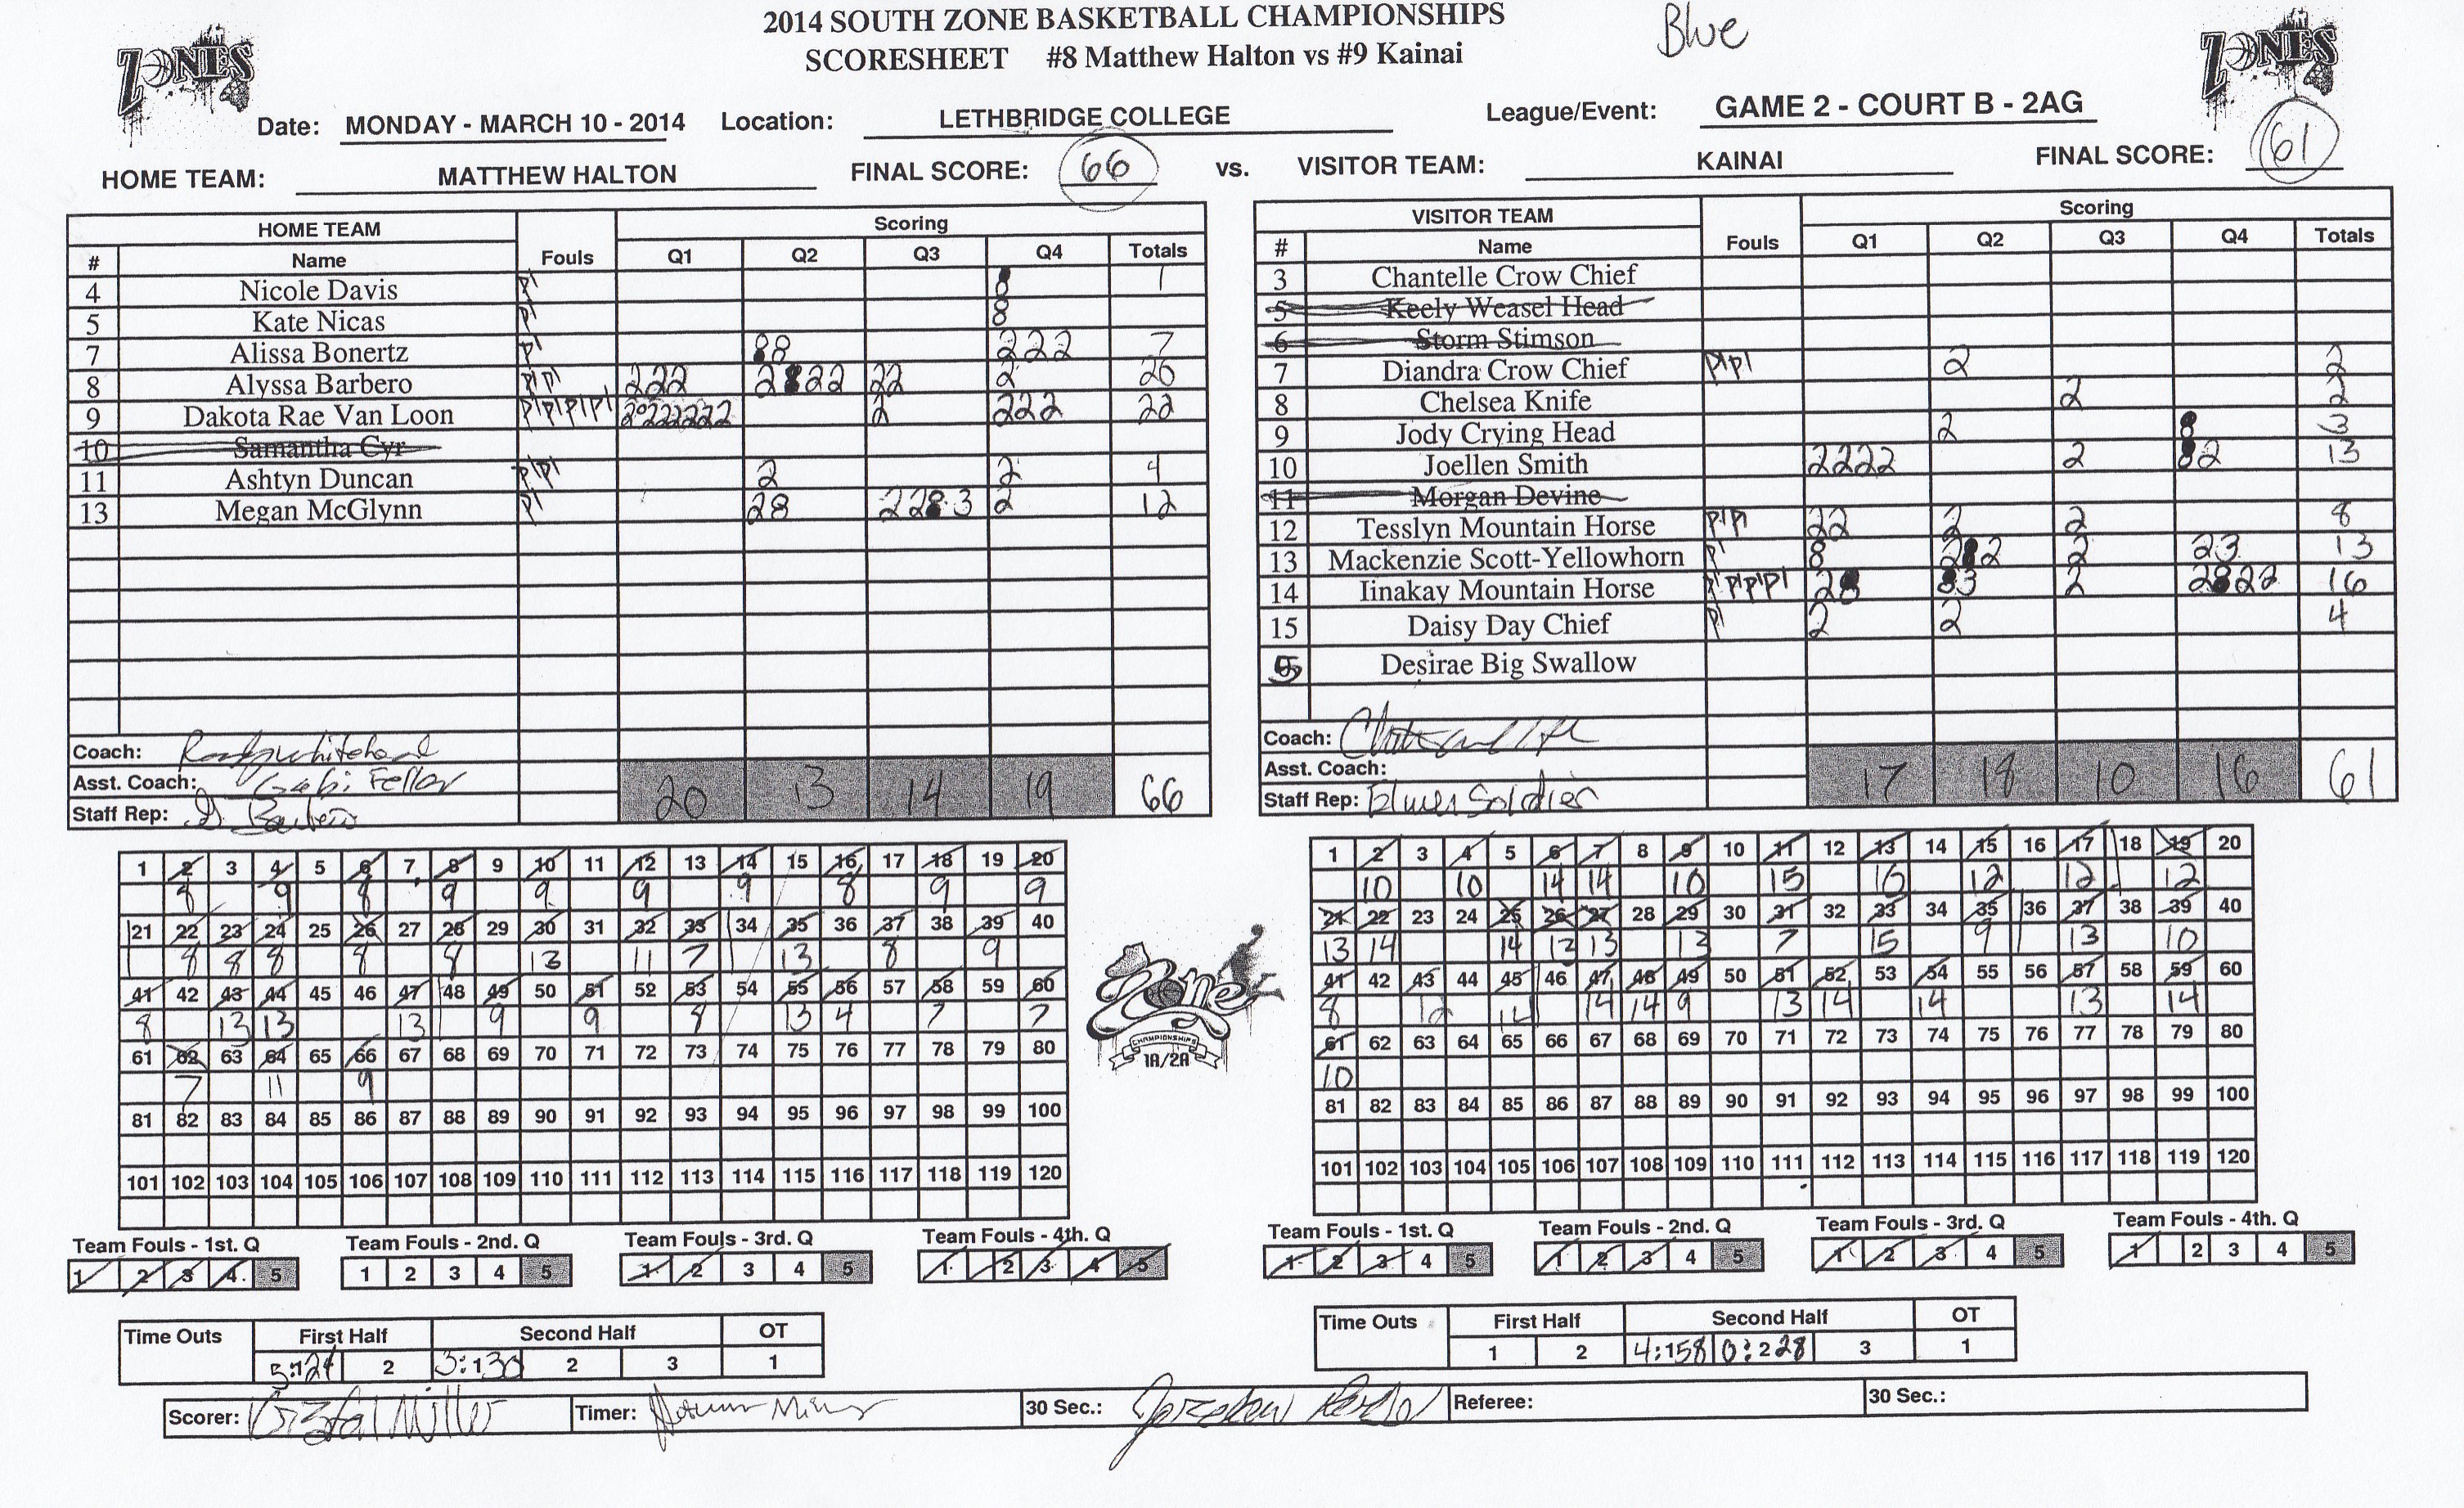 2014 SOUTH ZONE BASKETBALL CHAMPIONSHIPS
SCORESHEET #8 Matthew Halton vs #9 Kainai
Blue
ZONES
ZONES
Date: MONDAY - MARCH 10 - 2014 Location: LETHBRIDGE COLLEGE League/Event: GAME 2 - COURT B - 2AG
HOME TEAM: MATTHEW HALTON FINAL SCORE: 66 vs. VISITOR TEAM: KAINAI FINAL SCORE: 61
HOME TEAM Fouls Scoring
# Name Q1 Q2 Q3 Q4 Totals
4 Nicole Davis 1
5 Kate Nicas
7 Alissa Bonertz 222 7
8 Alyssa Barbero 222 22 2 20
9 Dakota Rae Van Loon 2 222 22
10 Samantha Cyr
11 Ashtyn Duncan 2 2 4
13 Megan McGlynn 2 12
Coach:
Asst. Coach: Gabi Fellor
Staff Rep:
20 13 14 19 66
VISITOR TEAM Fouls Scoring
# Name Q1 Q2 Q3 Q4 Totals
3 Chantelle Crow Chief
5 Keely Weasel Head
6 Storm Stimson
7 Diandra Crow Chief 2 2
8 Chelsea Knife 2 2
9 Jody Crying Head 2 3
10 Joellen Smith 2222 2 2 13
11 Morgan Devine
12 Tesslyn Mountain Horse 22 2 2 8
13 Mackenzie Scott-Yellowhorn 2 23 13
14 Iinakay Mountain Horse 2 16
15 Daisy Day Chief 2 2 4
5 Desirae Big Swallow
Coach:
Asst. Coach:
Staff Rep: Elmer Soldier
17 18 10 16 61
1 2 3 4 5 6 7 8 9 10 11 12 13 14 15 16 17 18 19 20
8 9 8 9 9 9 9 8 9 9
21 22 23 24 25 26 27 28 29 30 31 32 33 34 35 36 37 38 39 40
8 8 8 8 8 13 11 7 13 8 9
41 42 43 44 45 46 47 48 49 50 51 52 53 54 55 56 57 58 59 60
8 13 13 13 9 9 8 13 4 7 7
61 62 63 64 65 66 67 68 69 70 71 72 73 74 75 76 77 78 79 80
7 11 9
81 82 83 84 85 86 87 88 89 90 91 92 93 94 95 96 97 98 99 100
101 102 103 104 105 106 107 108 109 110 111 112 113 114 115 116 117 118 119 120
Zone
CHAMPIONSHIPS
1A/2A
1 2 3 4 5 6 7 8 9 10 11 12 13 14 15 16 17 18 19 20
10 10 14 14 10 15 12 12 12
21 22 23 24 25 26 27 28 29 30 31 32 33 34 35 36 37 38 39 40
13 14 14 13 13 13 7 15 9 13 10
41 42 43 44 45 46 47 48 49 50 51 52 53 54 55 56 57 58 59 60
8 12 14 14 14 9 13 14 14 13 14
61 62 63 64 65 66 67 68 69 70 71 72 73 74 75 76 77 78 79 80
10
81 82 83 84 85 86 87 88 89 90 91 92 93 94 95 96 97 98 99 100
101 102 103 104 105 106 107 108 109 110 111 112 113 114 115 116 117 118 119 120
Team Fouls - 1st. Q Team Fouls - 2nd. Q Team Fouls - 3rd. Q Team Fouls - 4th. Q
1 2 3 4 5 1 2 3 4 5 1 2 3 4 5 1 2 3 4 5
Team Fouls - 1st. Q Team Fouls - 2nd. Q Team Fouls - 3rd. Q Team Fouls - 4th. Q
1 2 3 4 5 1 2 3 4 5 1 2 3 4 5 1 2 3 4 5
Time Outs First Half Second Half OT
2 2 3 1
Time Outs First Half Second Half OT
1 2 3 1
Scorer: Crystal Miller Timer: 30 Sec.: Referee: 30 Sec.: